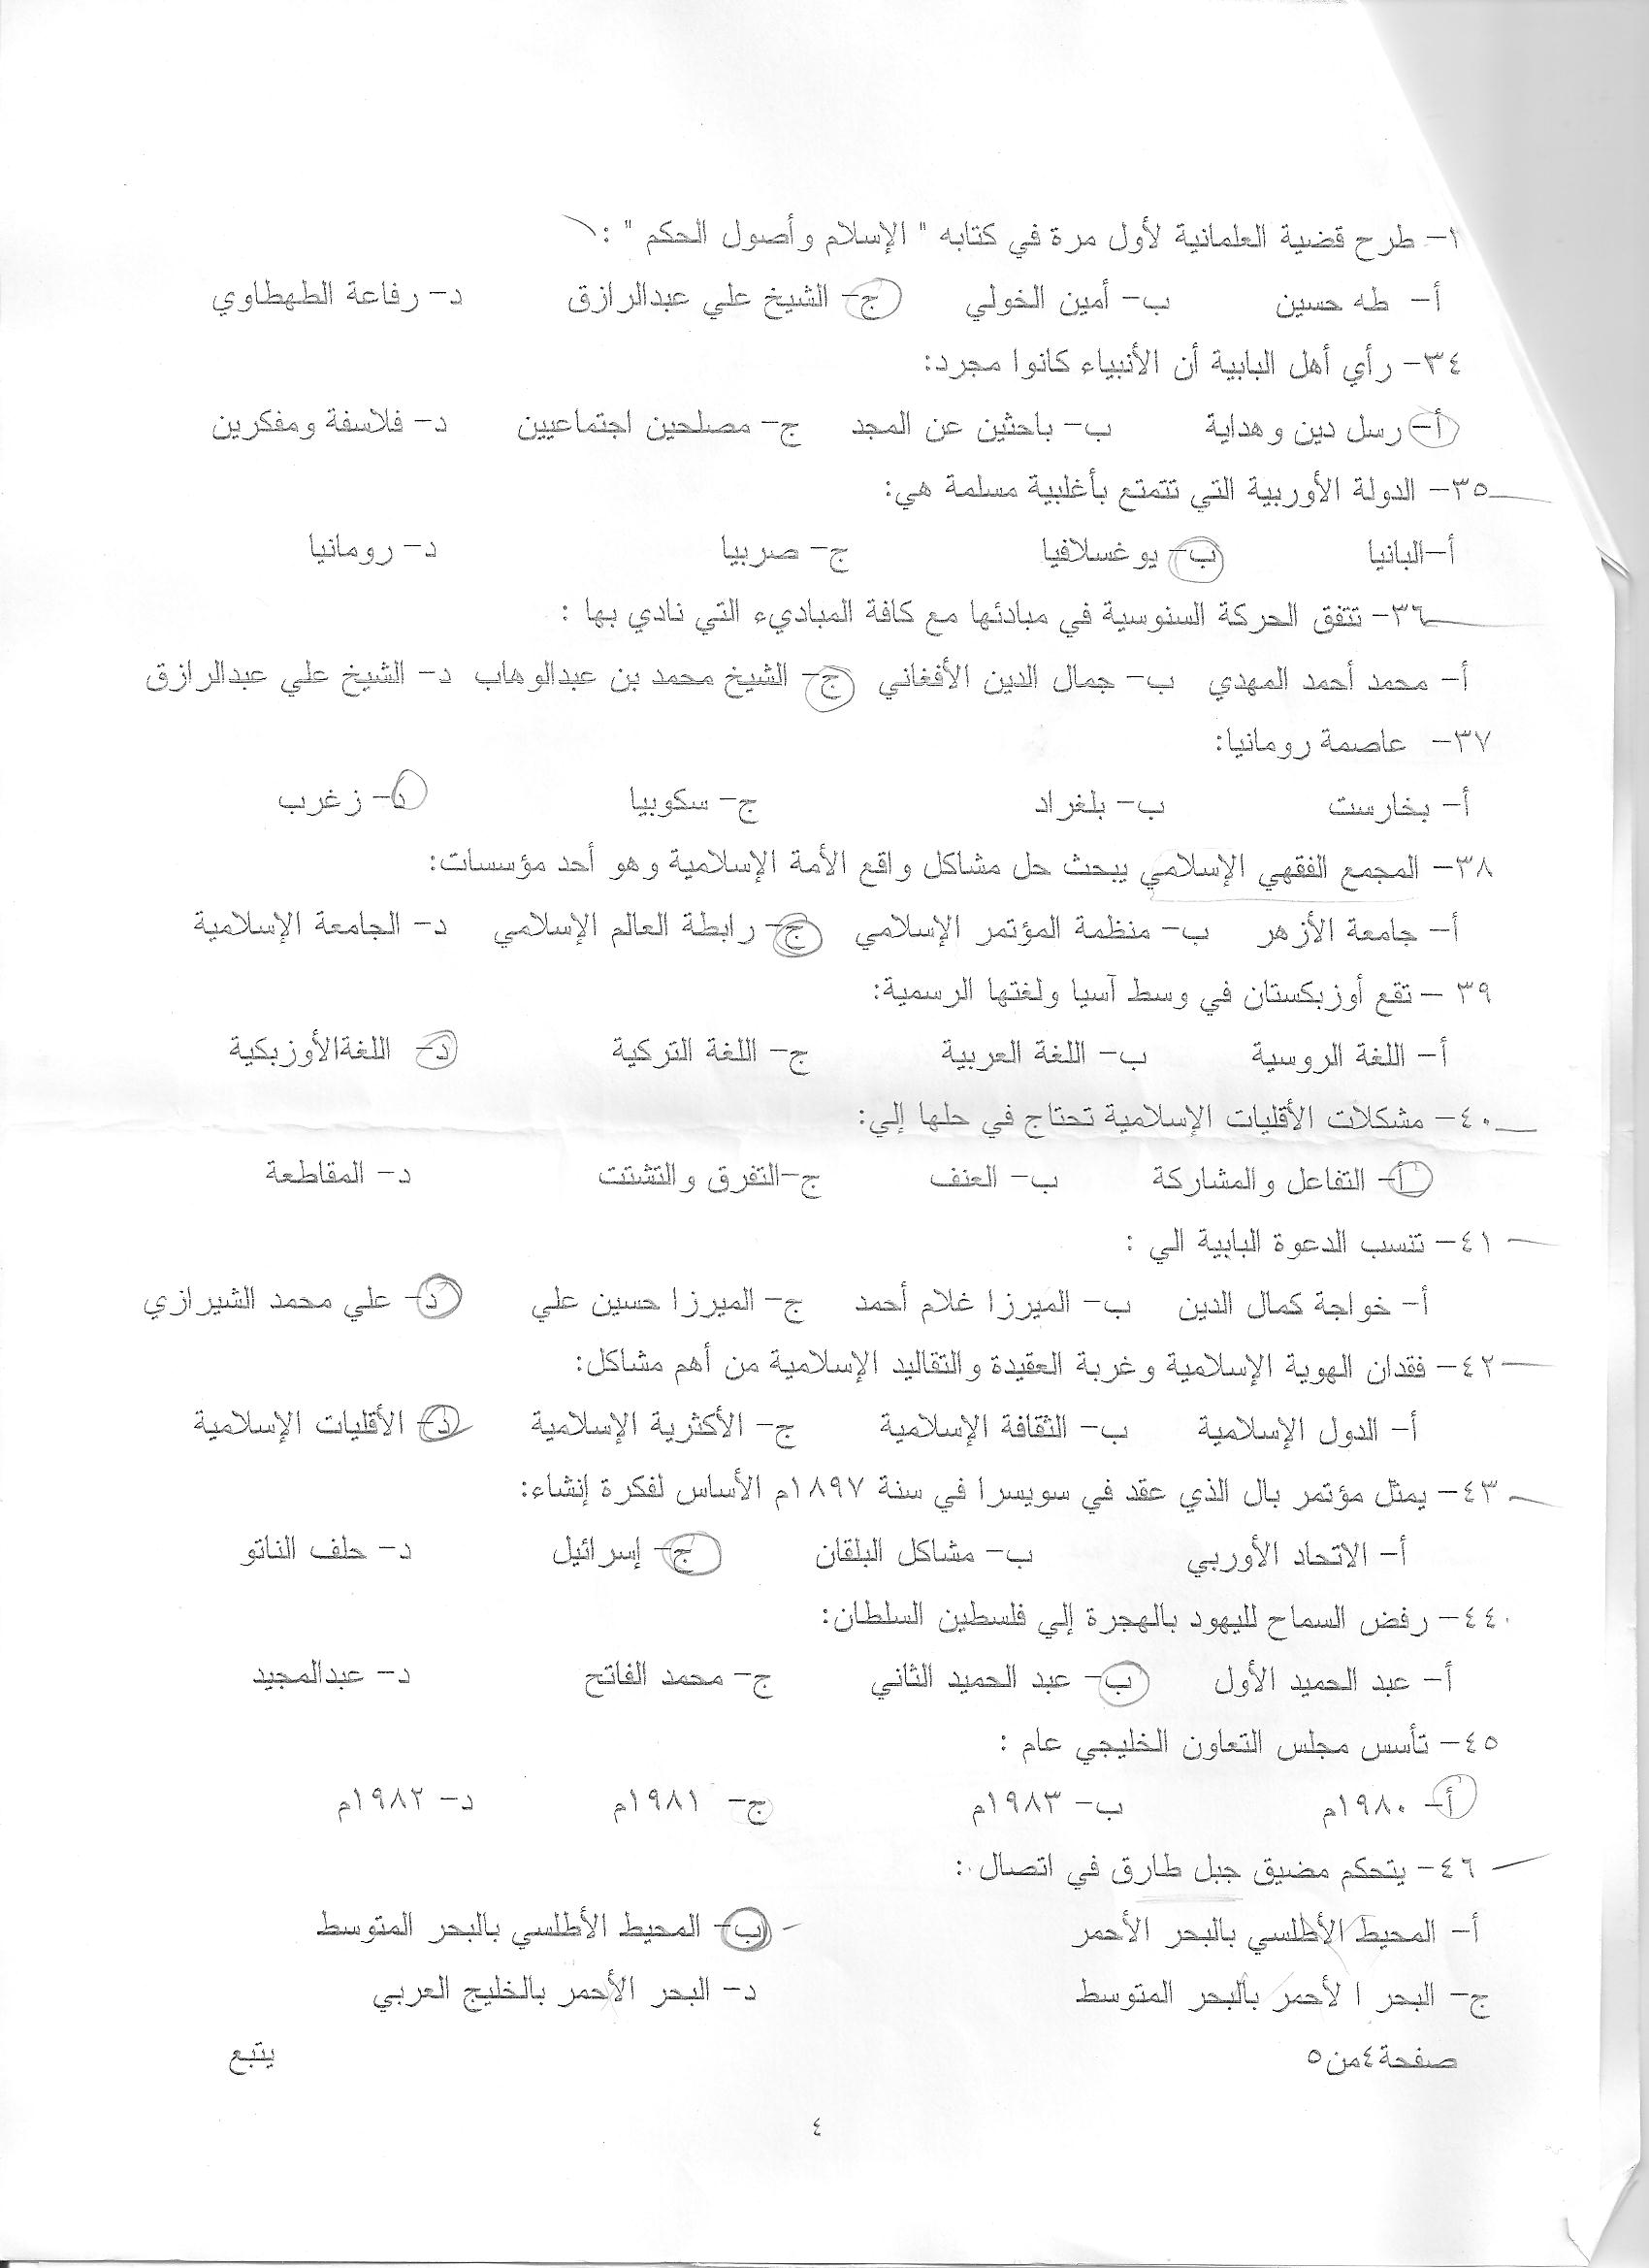 ١- طرح قضية العلمانية لأول مرة في كتابه " الإسلام وأصول الحكم " :
أ- طه حسين ب- أمين الخولي ج- الشيخ علي عبدالرازق د- رفاعة الطهطاوي
٣٤- رأي أهل البابية أن الأنبياء كانوا مجرد:
أ- رسل دين وهداية ب- باحثين عن المجد ج- مصلحين اجتماعيين د- فلاسفة ومفكرين
٣٥- الدولة الأوربية التي تتمتع بأغلبية مسلمة هي:
أ-البانيا ب- يوغسلافيا ج- صربيا د- رومانيا
٣٦- تتفق الحركة السنوسية في مبادئها مع كافة المباديء التي نادي بها :
أ- محمد أحمد المهدي ب- جمال الدين الأفغاني ج- الشيخ محمد بن عبدالوهاب د- الشيخ علي عبدالرازق
٣٧- عاصمة رومانيا:
أ- بخارست ب- بلغراد ج- سكوبيا د- زغرب
٣٨- المجمع الفقهي الإسلامي يبحث حل مشاكل واقع الأمة الإسلامية وهو أحد مؤسسات:
أ- جامعة الأزهر ب- منظمة المؤتمر الإسلامي ج- رابطة العالم الإسلامي د- الجامعة الإسلامية
٣٩ - تقع أوزبكستان في وسط آسيا ولغتها الرسمية:
أ- اللغة الروسية ب- اللغة العربية ج- اللغة التركية د- اللغةالأوزبكية
٤٠- مشكلات الأقليات الإسلامية تحتاج في حلها إلي:
أ- التفاعل والمشاركة ب- العنف ج-التفرق والتشتت د- المقاطعة
٤١- تنسب الدعوة البابية الي :
أ- خواجة كمال الدين ب- الميرزا غلام أحمد ج- الميرزا حسين علي د- علي محمد الشيرازي
٤٢- فقدان الهوية الإسلامية وغربة العقيدة والتقاليد الإسلامية من أهم مشاكل:
أ- الدول الإسلامية ب- الثقافة الإسلامية ج- الأكثرية الإسلامية د- الأقليات الإسلامية
٤٣- يمثل مؤتمر بال الذي عقد في سويسرا في سنة ١٨٩٧م الأساس لفكرة إنشاء:
أ- الاتحاد الأوربي ب- مشاكل البلقان ج- إسرائيل د- حلف الناتو
٤٤- رفض السماح لليهود بالهجرة إلي فلسطين السلطان:
أ- عبد الحميد الأول ب- عبد الحميد الثاني ج- محمد الفاتح د- عبدالمجيد
٤٥- تأسس مجلس التعاون الخليجي عام :
أ- ١٩٨٠م ب- ١٩٨٣م ج- ١٩٨١م د- ١٩٨٢م
٤٦- يتحكم مضيق جبل طارق في اتصال :
أ- المحيط الأطلسي بالبحر الأحمر ب- المحيط الأطلسي بالبحر المتوسط
ج- البحر ا لأحمر بالبحر المتوسط د- البحر الأحمر بالخليج العربي
صفحة٤من٥ يتبع
٤